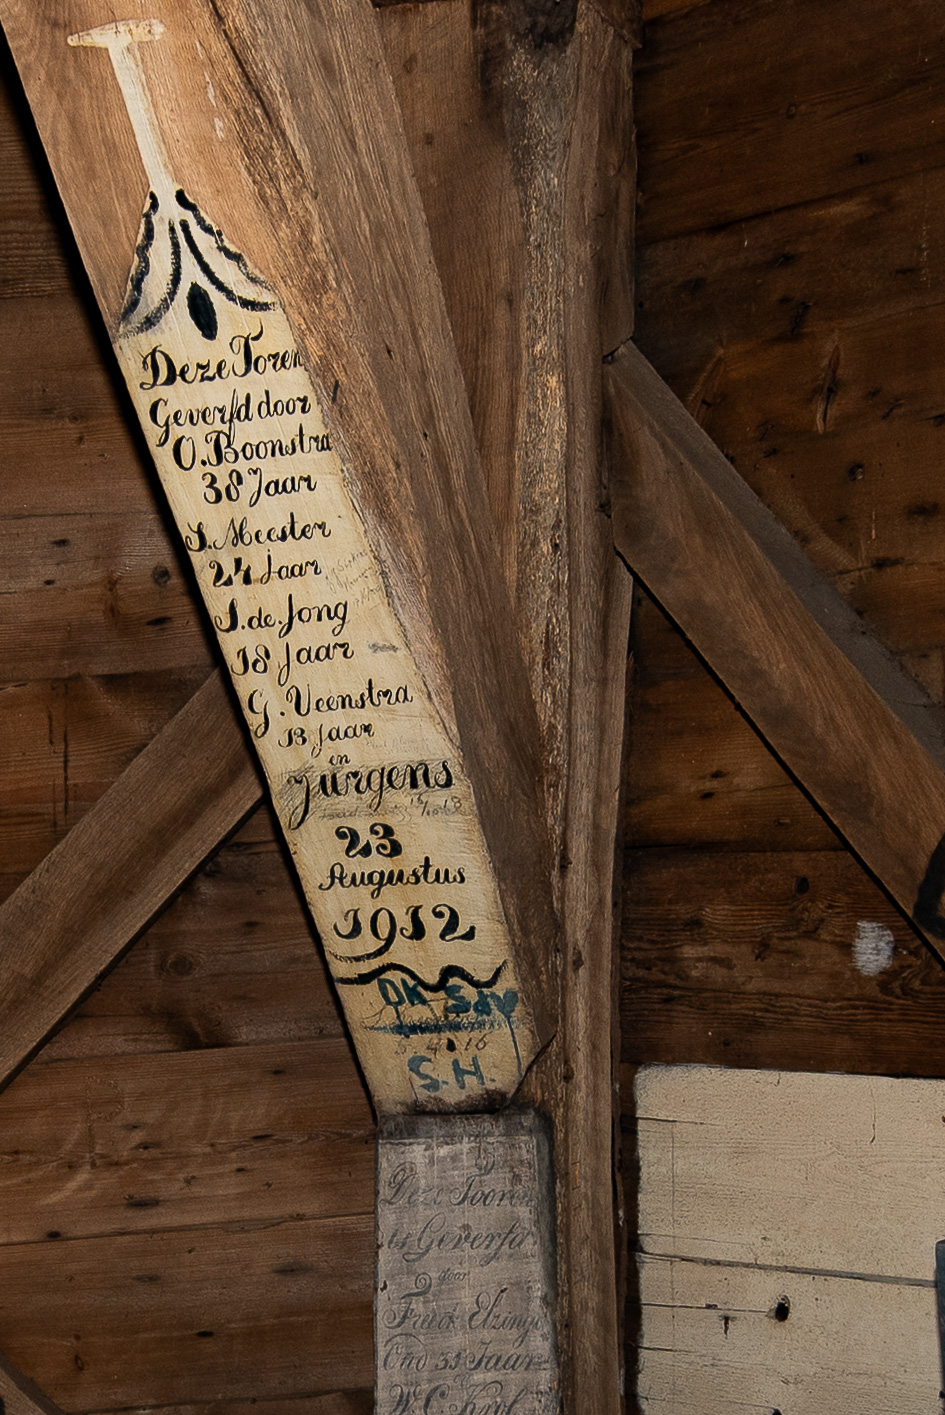 Deze Toren
Geverfd door
O. Boonstra
38 Jaar
S. Meester
24 Jaar
S. de Jong
18 Jaar
G. Veenstra
13 Jaar
en
Jurgens
23
Augustus
1912
DK SdV
S.H.
Deze Tooren
is Geverfd
door
Freerk Elzinga
Oud 35 Jaar
W.C. Krol